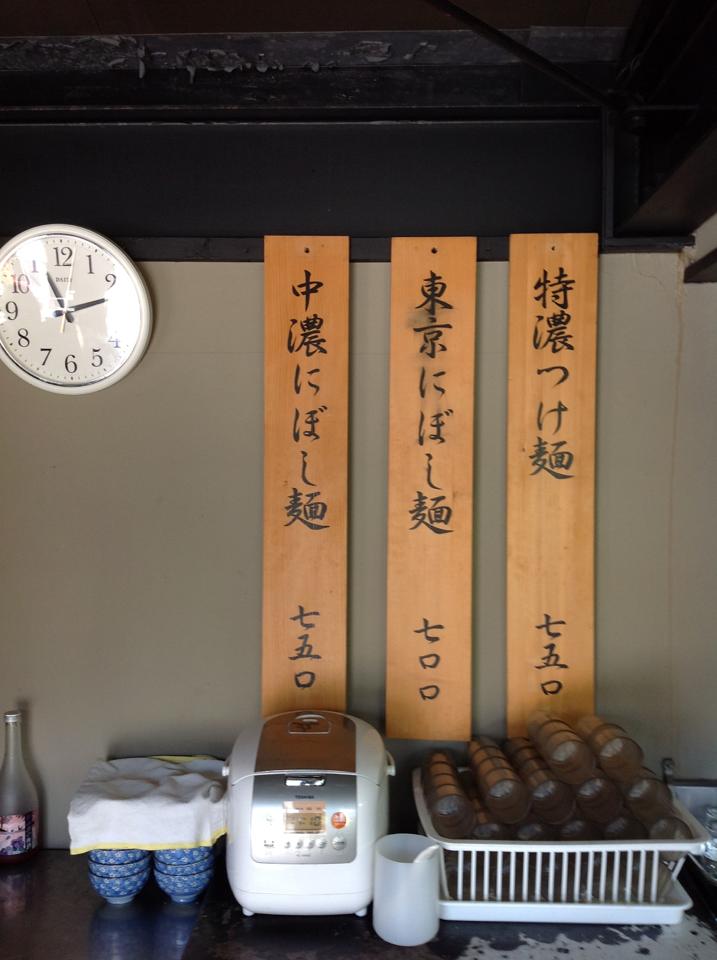 特濃つけ麺 七五〇
東京にぼし麺 七〇〇
中濃にぼし麺 七五〇
12
1
2
4
5
6
7
8
9
10
11
TOSHIBA